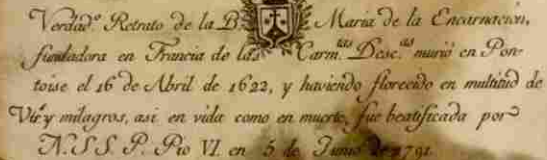 Verdad.º Retrato de la B. Maria de la Encarnacion,
fundadora en Francia de las Carm.tas Desc.as murió en Pon-
toise el 16 de Abril de 1622, y haviendo florecido en multitud de
Vir.s y milagros, asi en vida como en muerte, fue beatificada por
N. S. S. P. Pio VI. en 5 de Junio de 1791.